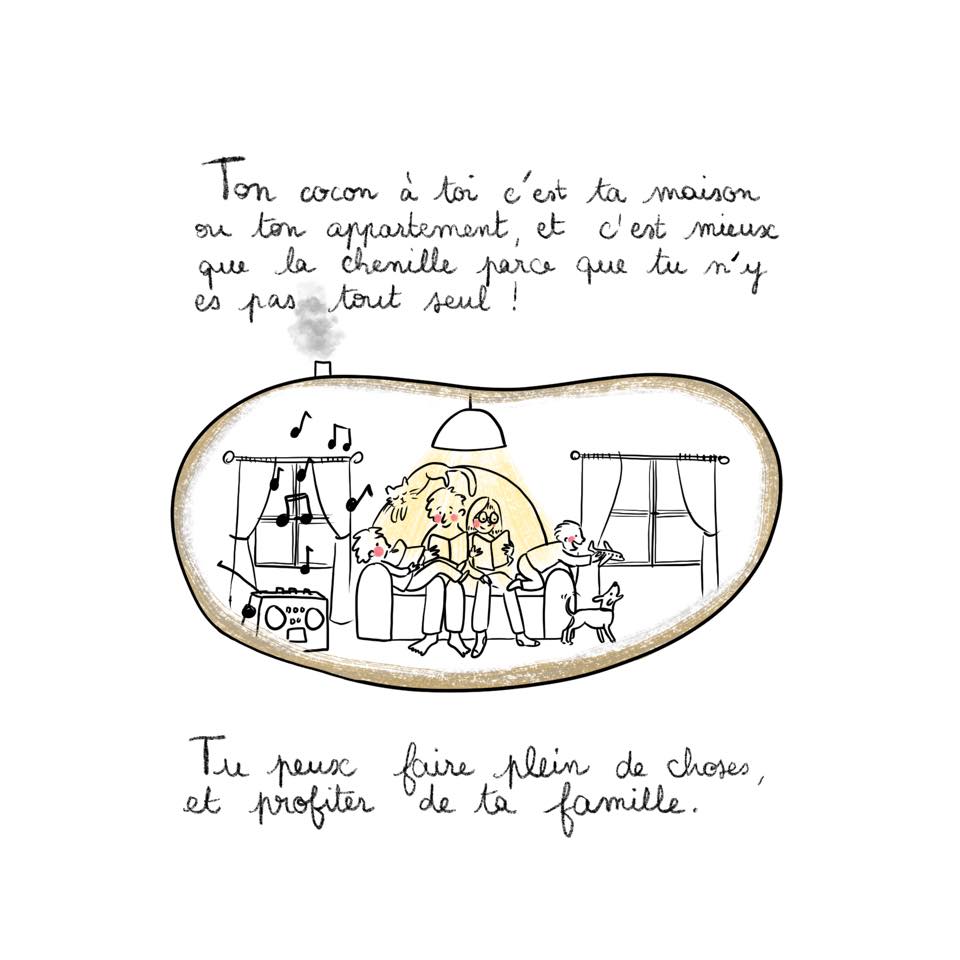 Ton cocon à toi c'est ta maison
ou ton appartement, et c'est mieux
que la chenille parce que tu n'y
es pas tout seul !
Tu peux faire plein de choses,
et profiter de ta famille.